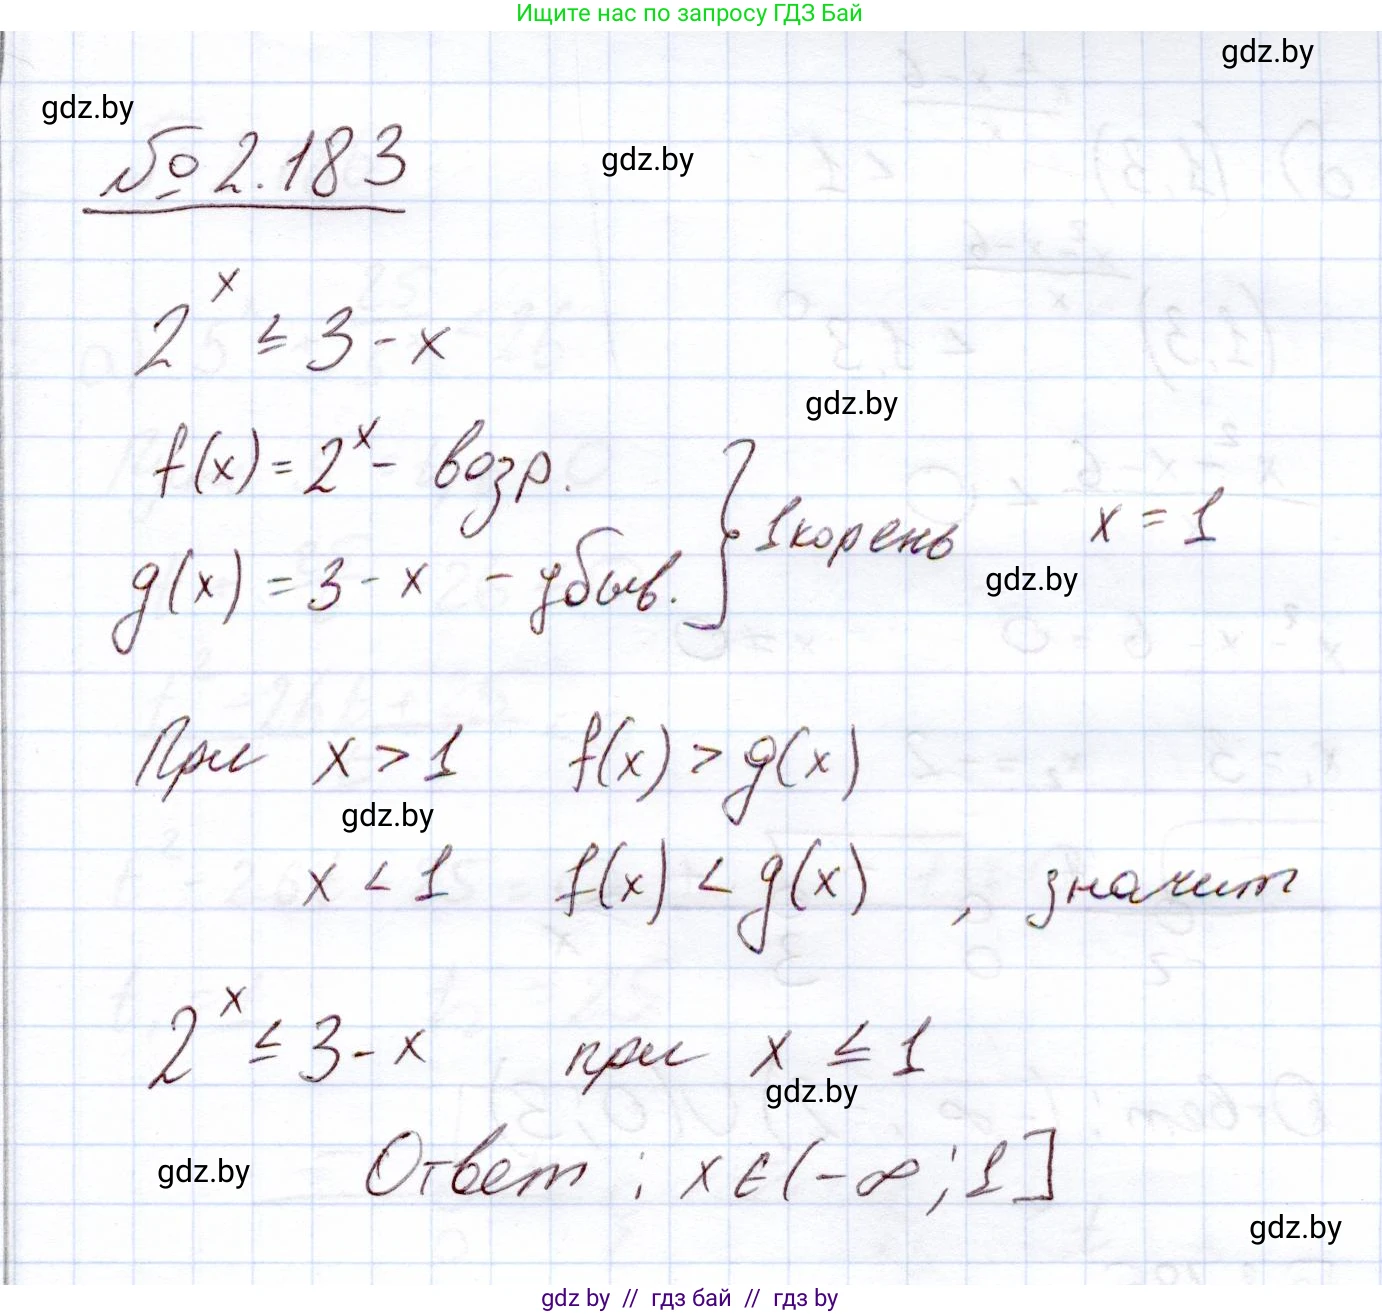 Ищите нас по запросу ГДЗ Бай
gdz.by
gdz.by
№ 2.183
gdz.by
2^x ≤ 3 - x
gdz.by
f(x) = 2^x - возр.
g(x) = 3 - x - убыв. } 1 корень x = 1
gdz.by
При x > 1 f(x) > g(x)
gdz.by
x < 1 f(x) < g(x) , значит
2^x ≤ 3 - x при x ≤ 1
gdz.by
Ответ : x ∈ (-∞; 1]
gdz.by
gdz.by
gdz by // гдз бай // гдз by